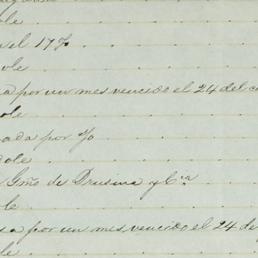 ole
el 17%
ole
a por un mes vencido el 24 del c
ole
ada por %
dole
Gmo de Drusina y Ca
le
sa por un mes vencido el 24 de
le